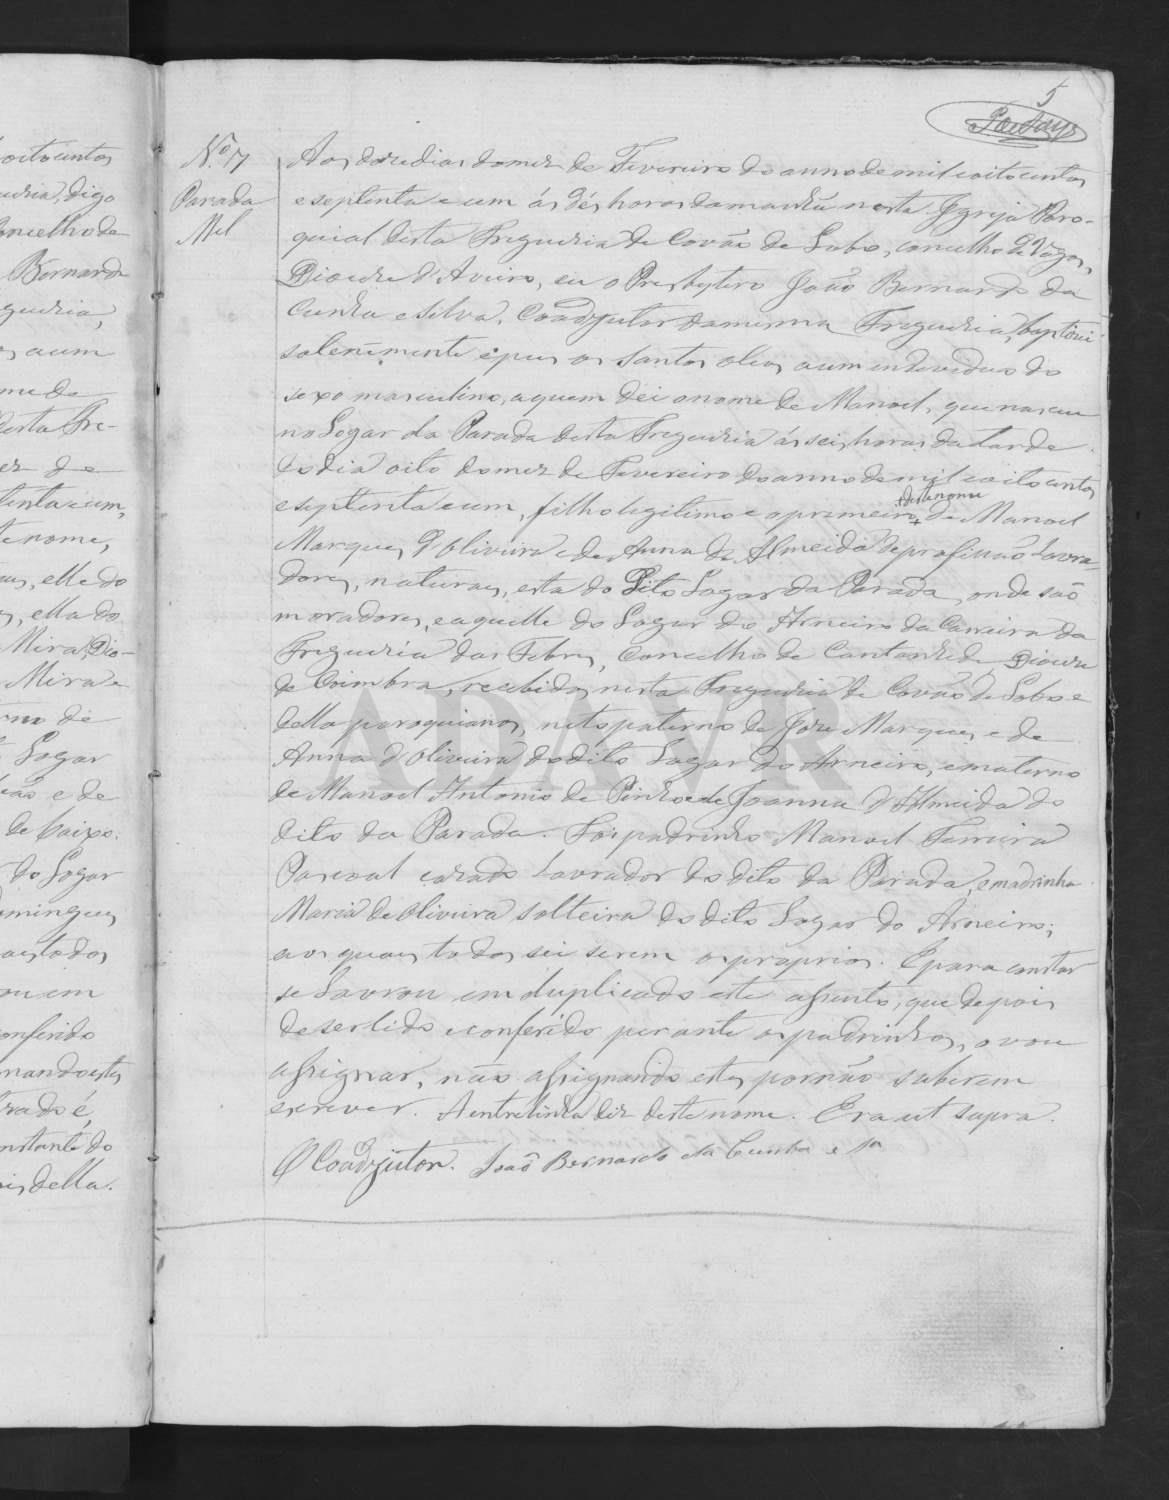 5
N.º 7
Parada
Mel
Aos doze dias do mez de Fevereiro do anno de mil e oito centos
e septenta e um ás dés horas da manhã nesta Igreja Paro-
quial desta Freguezia de Covão de Lobo, concelho de Vagos,
Diocese d'Aveiro, eu o Presbytero João Bernardo da
Cunha e Silva, Coadjutor da mesma Freguezia, baptizei
solenemente e pus os santos oleos a um individuo do
sexo masculino, a quem dei o nome de Manoel, que nasceu
no Logar da Parada desta Freguezia ás seis horas da tarde
do dia oito do mez de Fevereiro do anno de mil e oito centos
+ deste nome
e septenta e um, filho legitimo e o primeiro + de Manoel
Marques d'Oliveira e de Anna de Almeida de profissão Lavra-
dores, naturaes, esta do Dito Logar da Parada, onde são
moradores, e aquelle do Logar do Arneiro da Carreira da
Freguezia das Febres, Concelho de Cantanhede Diocese
de Coimbra, recebidos nesta Freguezia de Covão de Lobo e
della paroquianos, neto paterno de Jose Marques e de
Anna d'Oliveira do dito Logar do Arneiro, e materno
de Manoel Antonio de Pinho e de Joanna d'Almeida do
dito da Parada. Foi padrinho Manoel Ferreira
Pascoal cazado Lavrador do dito da Parada, e madrinha
Maria de Oliveira solteira do dito Logar do Arneiro;
aos quaes todos sei serem os proprios. E para constar
se Lavrou em duplicado este assento, que depois
de ser lido e conferido perante os padrinhos, o vou
assignar, não assignando estes por não saberem
escrever. A entrelinha diz deste nome. Era ut supra.
O Coadjutor. João Bernardo da Cunha e Sª
oito centos
digo
oncelho de
Bernardo
guezia,
a um
me de
desta Fre-
ez de
tenta e um,
te nome,
elle do
ella do
Mira, Dio-
Mira e
no de
Logar
ão e de
de baixo.
do Logar
omingues
os todos
ou em
onferido
nando estes
zado é,
onstante do
is della.
ADAVR